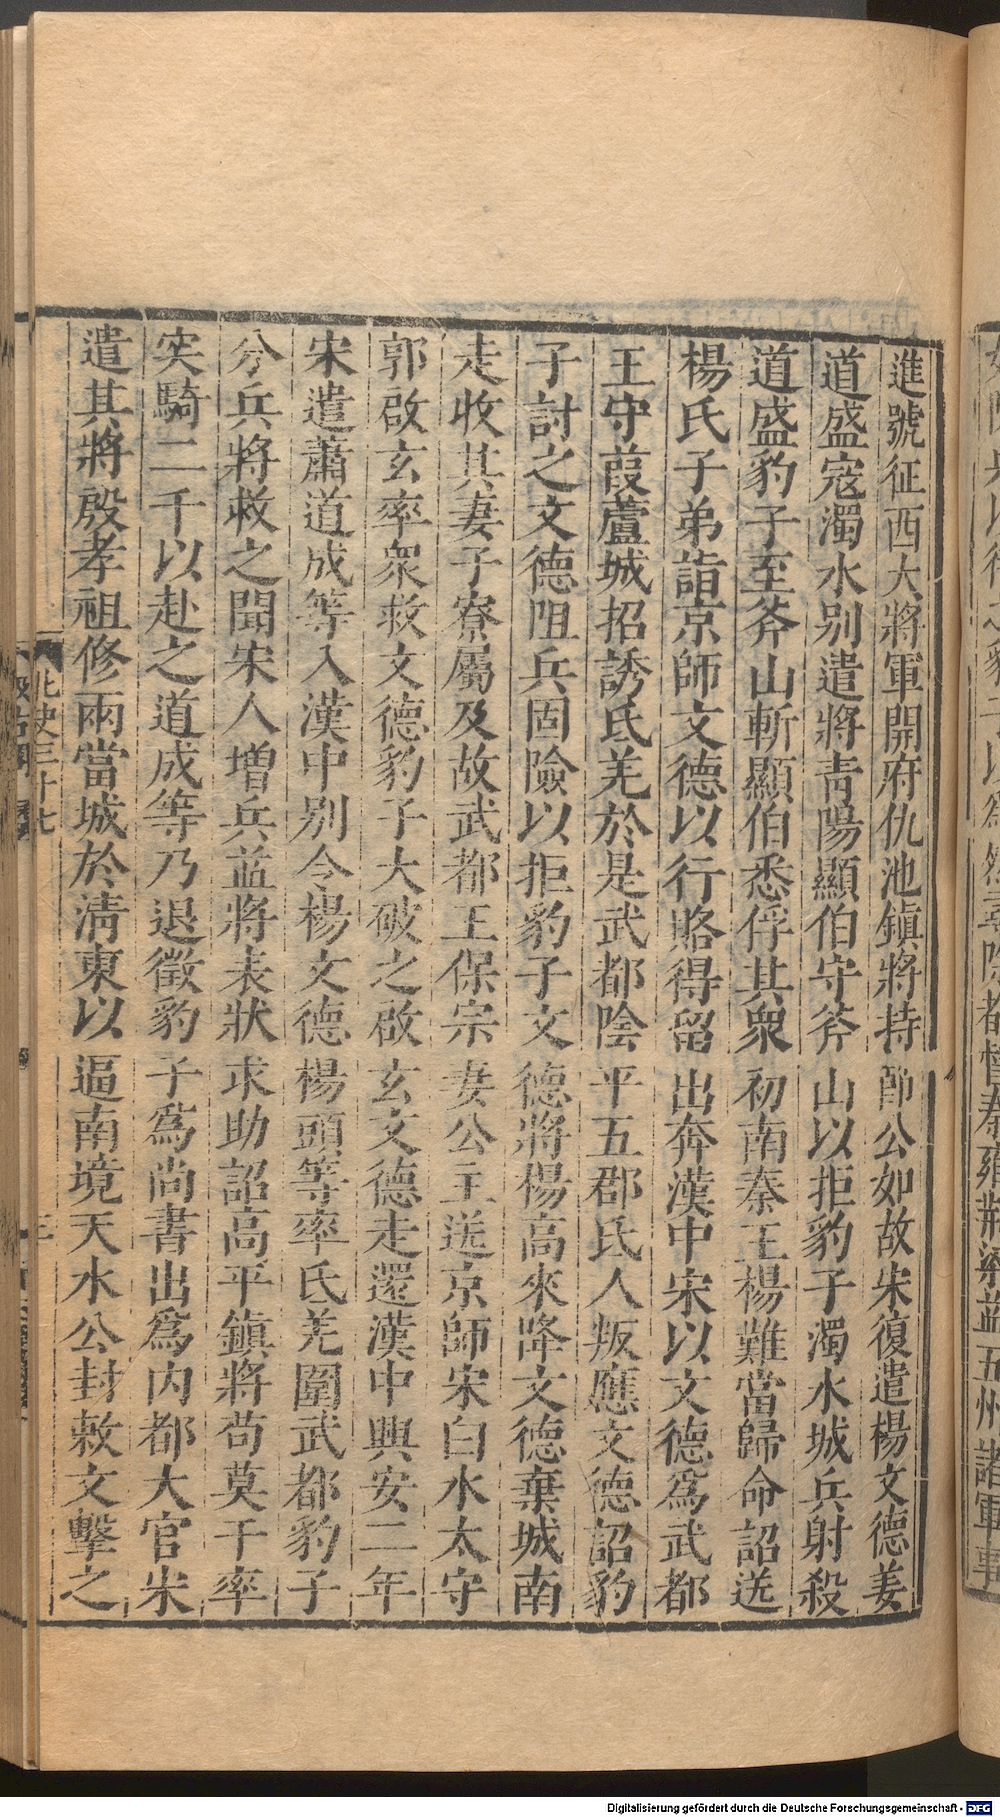 進號征西大將軍開府仇池鎮將持節公如故宋復遣楊文德姜
道盛寇濁水别遣將青陽顯伯守斧山以拒豹子濁水城兵射殺
道盛豹子至斧山斬顯伯悉俘其衆初南秦王楊難當歸命詔送
楊氏子弟詣京師文德以行賂得留出奔漢中宋以文德爲武都
王守葭蘆城招誘氐羌於是武都隂平五郡氐人叛應文德詔豹
子討之文德阻兵固險以拒豹子文德將楊高來降文德棄城南
走收其妻子寮屬及故武都王保宗妻公主送京師宋白水太守
郭啟玄率衆救文德豹子大破之啟玄文德走還漢中興安二年
宋遣蕭道成等入漢中别令楊文德楊頭等率氐羌圍武都豹子
分兵將救之聞宋人增兵益將表狀求助詔高平鎮將苟莫于率
突騎二千以赴之道成等乃退徵豹子爲尚書出爲内都大官宋
遣其將殷孝祖修兩當城於清東以逼南境天水公封敕文擊之
北史三十七
三
Digitalisierung gefördert durch die Deutsche Forschungsgemeinschaft - DFG